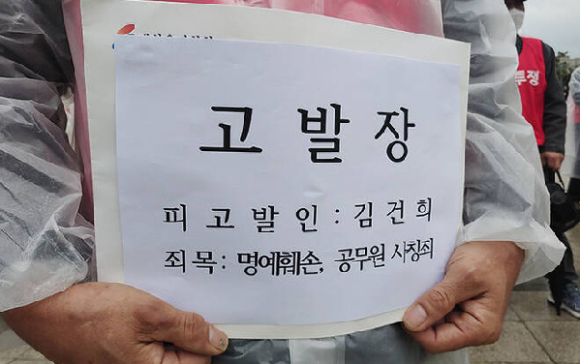 고발장
피고발인 : 김건희
죄목 : 명예훼손, 공무원 사칭죄
투쟁